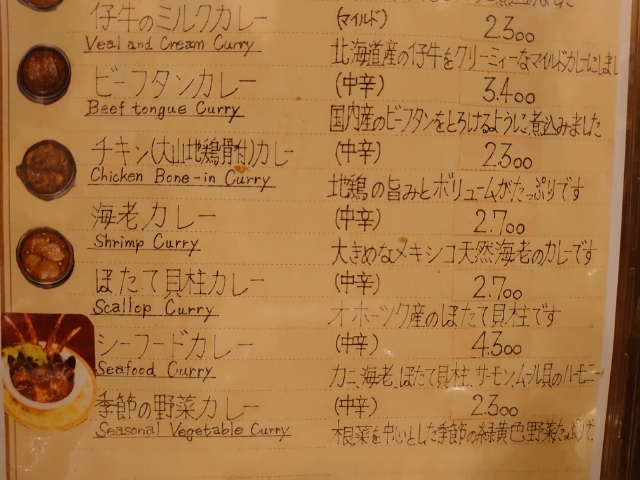 仔牛のミルクカレー (マイルド) 2.300
Veal and Cream Curry
北海道産の仔牛をクリーミィーなマイルドカレーにしまし
ビーフタンカレー (中辛) 3.400
Beef tongue Curry
国内産のビーフタンをとろけるように煮込みました
チキン(大山地鶏骨付)カレー (中辛) 2.300
Chicken Bone-in Curry
地鶏の旨みとボリュームがたっぷりです
海老カレー (中辛) 2.700
Shrimp Curry
大きめなメキシコ天然海老のカレーです
ほたて貝柱カレー (中辛) 2.700
Scallop Curry
オホーツク産のほたて貝柱です
シーフードカレー (中辛) 4.300
Seafood Curry
カニ、海老、ほたて貝柱、サーモン、ムール貝のハーモニー
季節の野菜カレー (中辛) 2.300
Seasonal Vegetable Curry
根菜を中心とした季節の緑黄色野菜たっぷりで